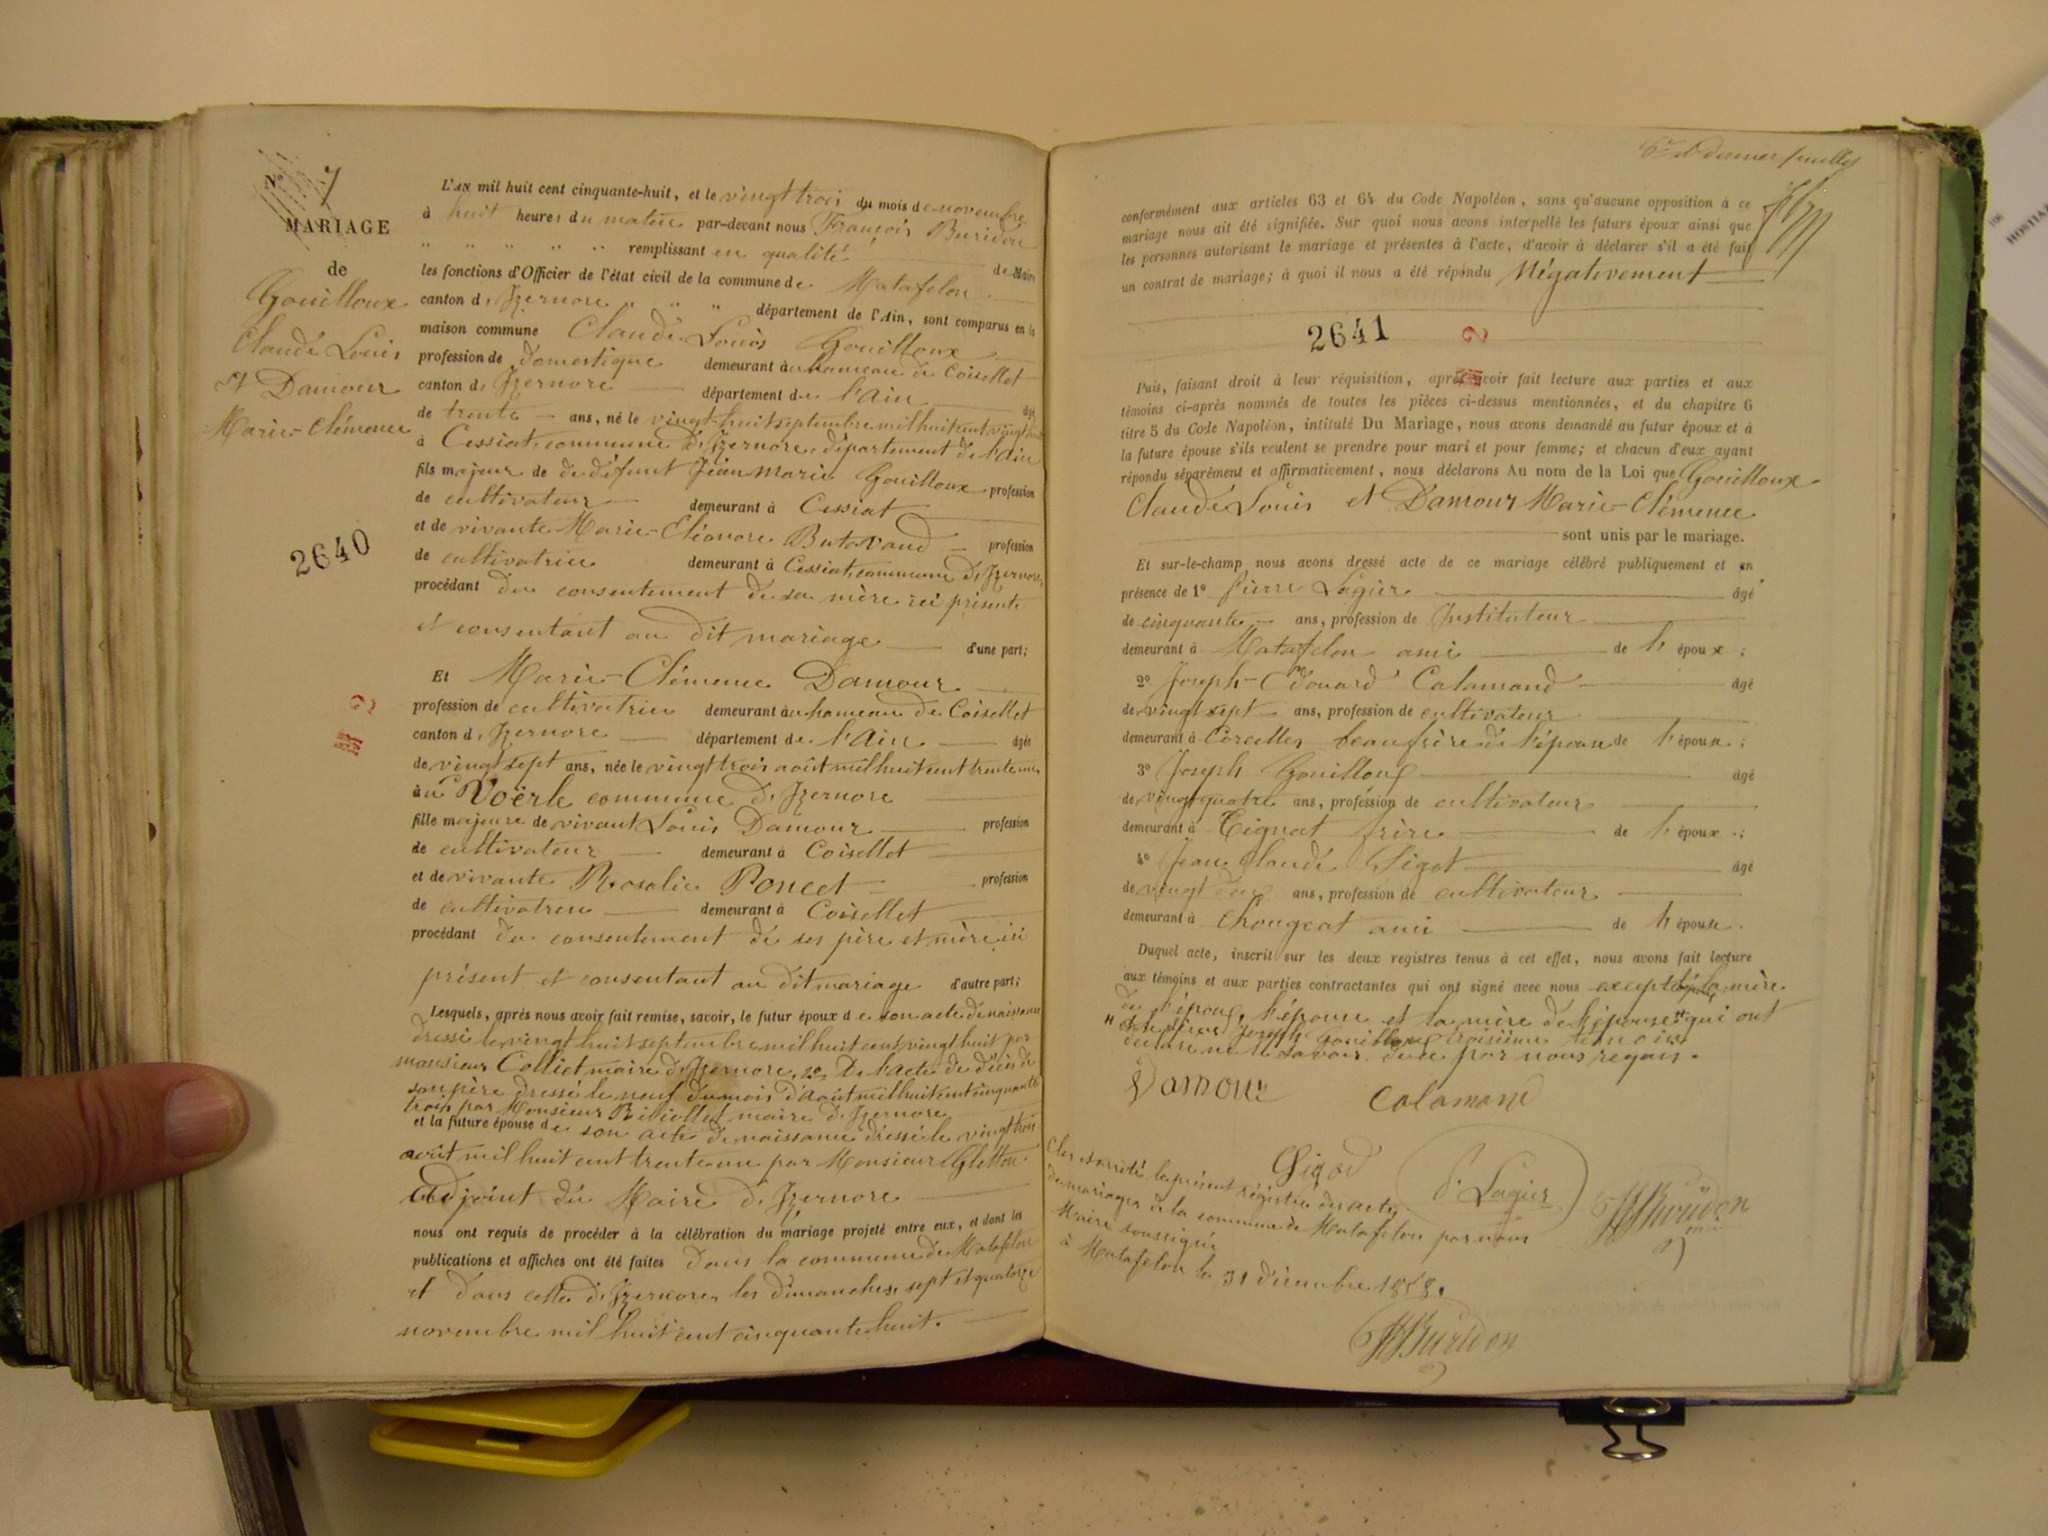 N. 7
MARIAGE
de
Gouilloux
Claude Louis
et Damour
Marie-Clémence
2640
L'an mil huit cent cinquante-huit, et le vingt trois du mois de novembre
à huit heures du matin par-devant nous François Buridon
" " " " " remplissant en qualité de Maire
les fonctions d'Officier de l'état civil de la commune de Matafelon
canton d'Izernore " " " département de l'Ain, sont comparus en la
maison commune Claude Louis Gouilloux
profession de domestique demeurant au hameau de Coisellet
canton d'Izernore département de l'Ain âgé
de trente ans, né le vingt-huit septembre mil huit cent vingt huit
à Cessiat, commune d'Izernore, département de l'Ain
fils majeur de de défunt Jean Marie Gouilloux profession
de cultivateur demeurant à Cessiat
et de vivante Marie-Eléonore Butavand profession
de cultivatrice demeurant à Cessiat, commune d'Izernore,
procédant du consentement de sa mère ici présente
et consentant au dit mariage d'une part;
Et Marie-Clémence Damour
profession de cultivatrice demeurant au hameau de Coisellet
canton d'Izernore département de l'Ain âgée
de vingt sept ans, née le vingt trois août mil huit cent trente un,
au Voërle commune d'Izernore
fille majeure de vivant Louis Damour profession
de cultivateur demeurant à Coisellet
et de vivante Rosalie Poncet profession
de cultivatrice demeurant à Coisellet
procédant du consentement de ses père et mère ici
présent et consentant au dit mariage d'autre part;
Lesquels, après nous avoir fait remise, savoir, le futur époux de son acte de naissance
dressé le vingt huit septembre mil huit cent vingt huit par
monsieur Colliet maire d'Izernore, 2º De l'acte de décès de
son père dressé le neuf du mois d'août mil huit cent cinquante
trois par Monsieur maire d'Izernore
et la future épouse de son acte de naissance dressé le vingt trois
août mil huit cent trente un par Monsieur
adjoint du Maire d'Izernore
nous ont requis de procéder à la célébration du mariage projeté entre eux, et dont les
publications et affiches ont été faites dans la commune de Matafelon
et dans celle d'Izernore, les dimanches sept et quatorze
novembre mil huit cent cinquante huit.
conformément aux articles 63 et 64 du Code Napoléon, sans qu'aucune opposition à ce
mariage nous ait été signifiée. Sur quoi nous avons interpellé les futurs époux ainsi que
les personnes autorisant le mariage et présentes à l'acte, d'avoir à déclarer s'il a été fait
un contrat de mariage; à quoi il nous a été répondu Négativement
2641
Puis, faisant droit à leur réquisition, après avoir fait lecture aux parties et aux
témoins ci-après nommés de toutes les pièces ci-dessus mentionnées, et du chapitre 6
titre 5 du Code Napoléon, intitulé Du Mariage, nous avons demandé au futur époux et à
la future épouse s'ils veulent se prendre pour mari et pour femme; et chacun d'eux ayant
répondu séparément et affirmativement, nous déclarons Au nom de la Loi que Gouilloux
Claude Louis et Damour Marie-Clémence
sont unis par le mariage.
Et sur-le-champ nous avons dressé acte de ce mariage célébré publiquement et en
présence de 1º Pierre Lagier âgé
de cinquante ans, profession de Instituteur
demeurant à Matafelon ami de l'époux;
2º Joseph-Edouard Calamand âgé
de vingt sept ans, profession de cultivateur
demeurant à Corcelles beau frère de l'épouse de l'épouse;
3º Joseph Gouilloux âgé
de vingt quatre ans, profession de cultivateur
demeurant à Tignat frère de l'époux;
4º Jean Claude Sigod âgé
de vingt deux ans, profession de cultivateur
demeurant à Chougeat ami de l'épouse.
Duquel acte, inscrit sur les deux registres tenus à cet effet, nous avons fait lecture
aux témoins et aux parties contractantes qui ont signé avec nous excepté la mère
de l'époux, l'épouse et la mère de l'épouse " qui ont
" et le sieur Joseph Gouilloux troisième témoin
déclaré ne le savoir de ce par nous requis.
Damour Calamand
Sigod P. Lagier Buridon
Clos et arrêté le présent registre des actes
de mariages de la commune de Matafelon par nous
Maire soussigné
à Matafelon le 31 décembre 1858.
Buridon